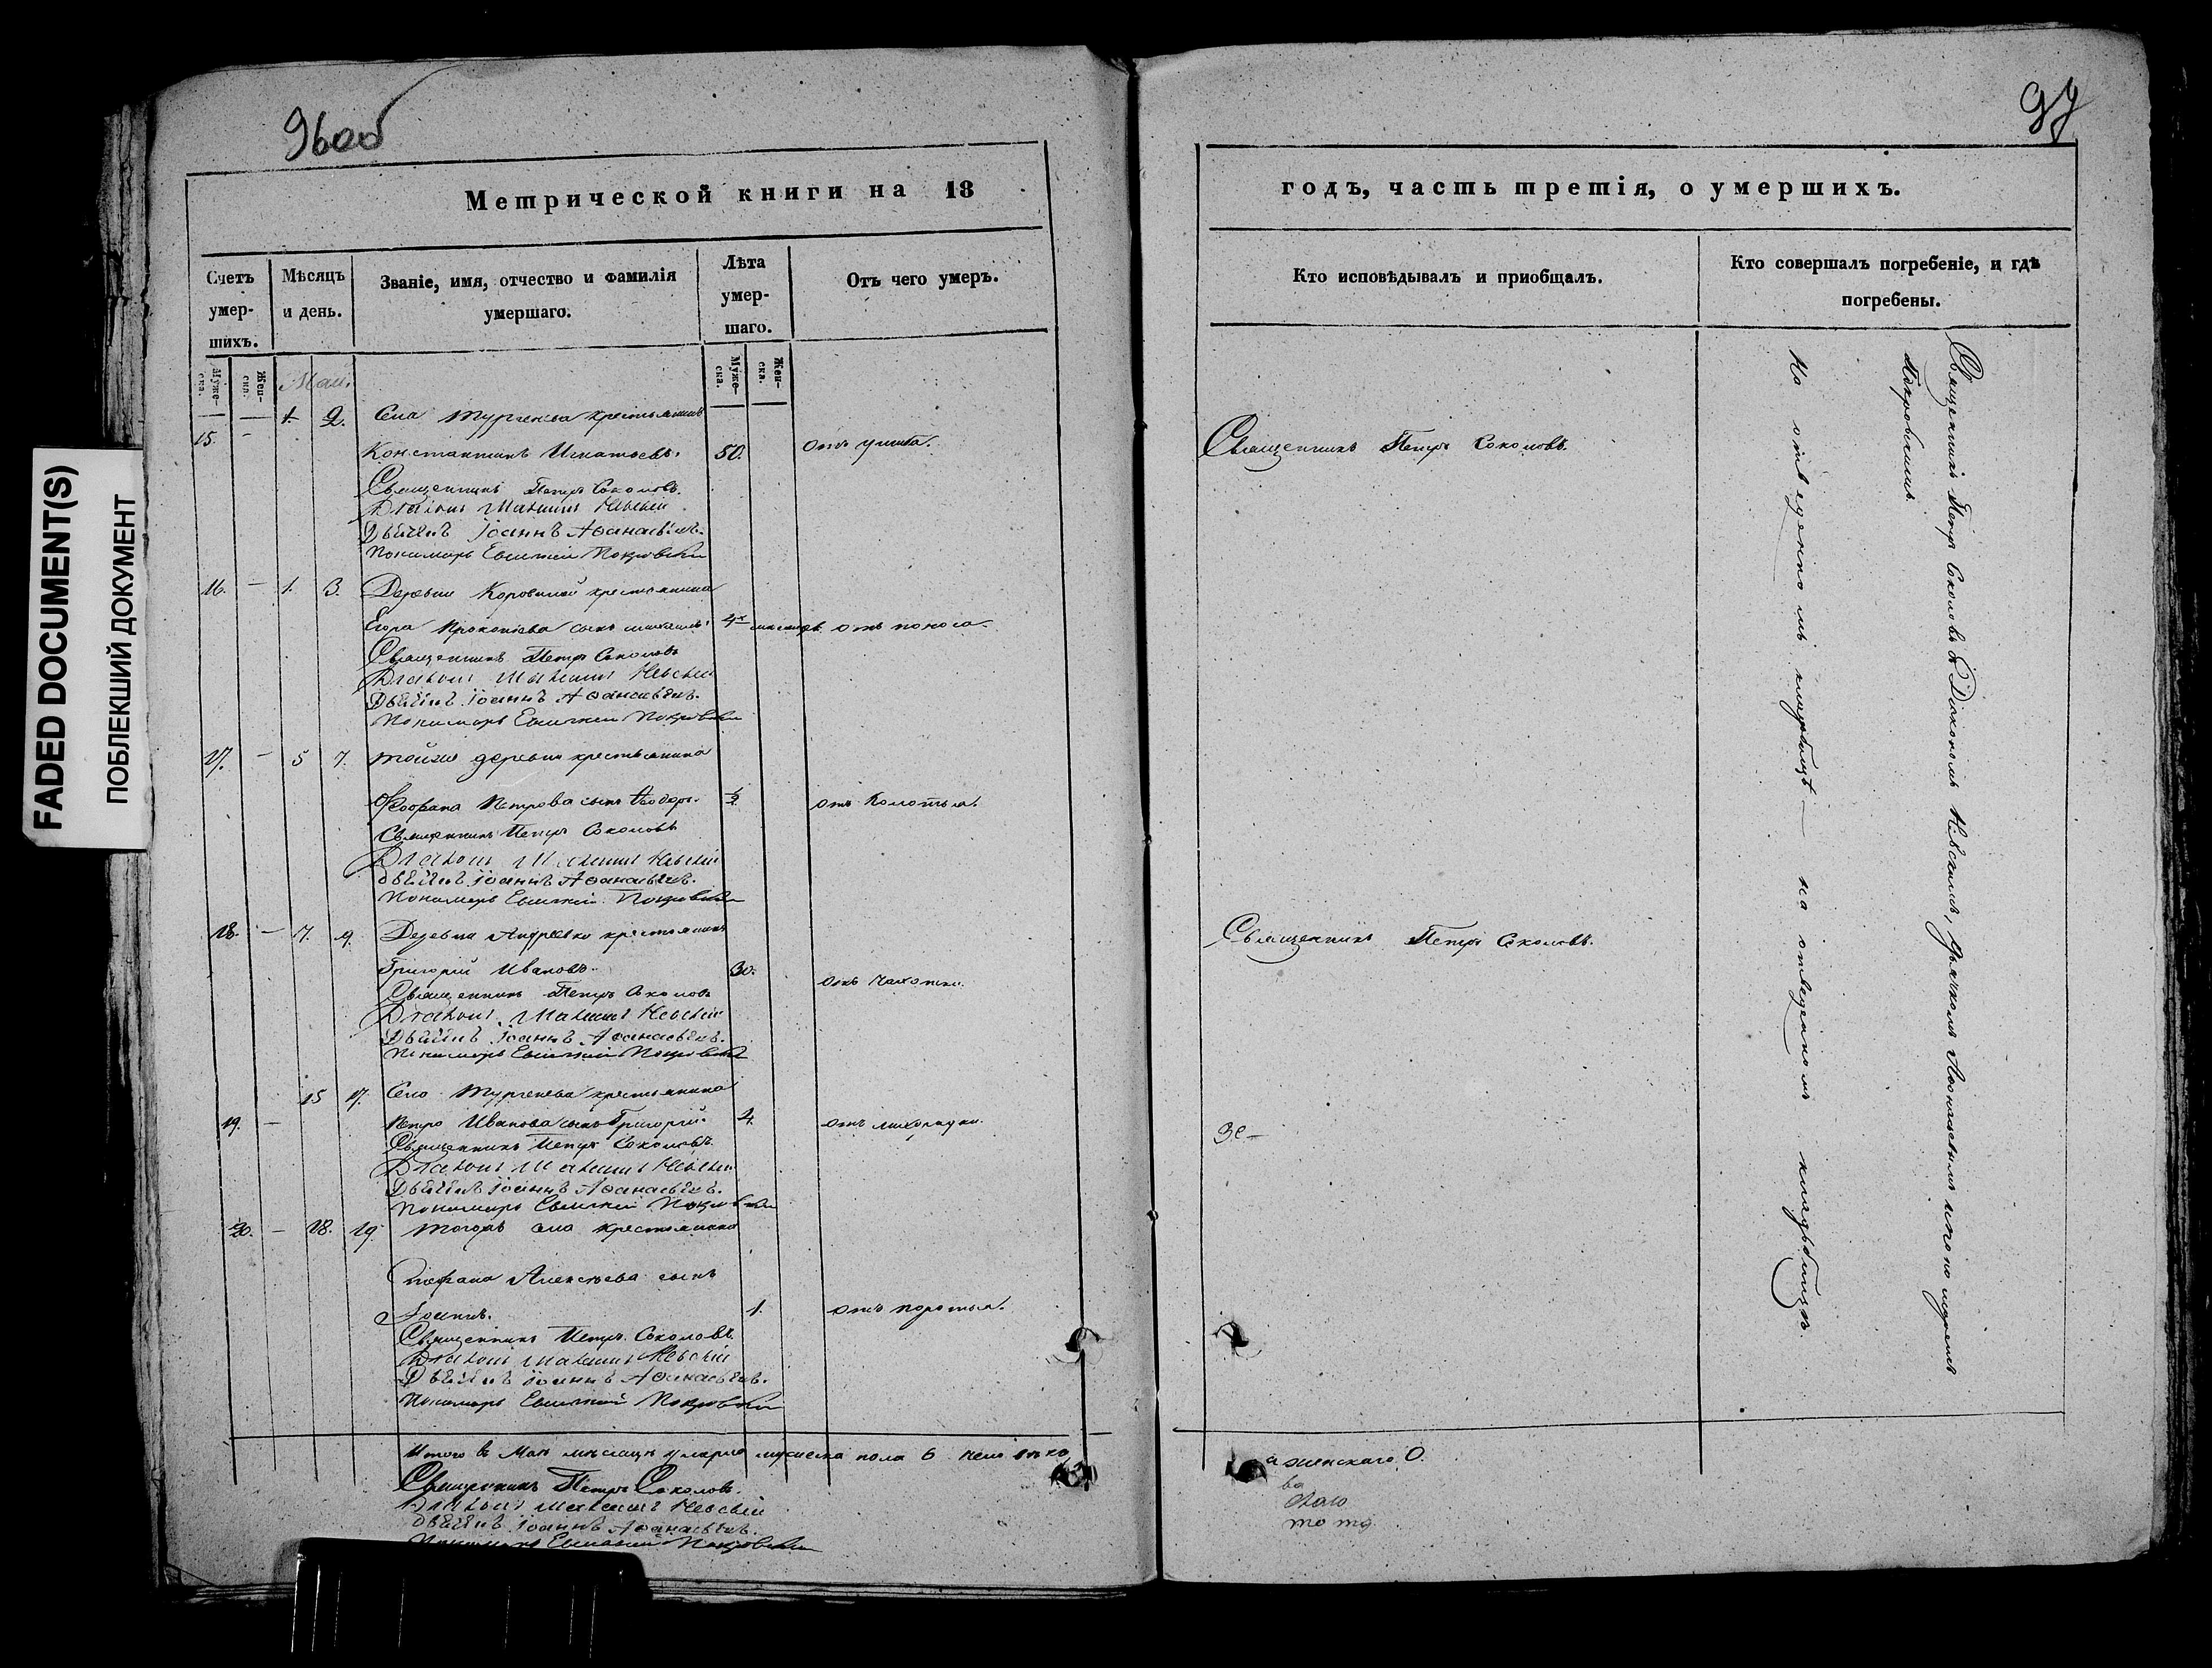 96 об
Метрической книги на 18
Счетъ умер-
шихъ.
Мѣсяцъ
и день.
Званіе, имя, отчество и фамилія
умершаго.
Лѣта
умер-
шаго.
Отъ чего умеръ.
Муже-
ска.
Жен-
ска.
Май.
Муже-
ска.
Жен-
ска.
1. 2. Села Тургенева крестьянинъ
15. - Константинъ Игнатьевъ. 50. отъ
Священникъ Петръ Соколовъ.
Діаконъ Невскій
Дьячекъ Іоаннъ Аѳанасьевъ.
Пономарь Евгеній Покровскій
16. - 1. 3. Деревни крестьянина
Егора Прокопіева сынъ 4х мѣсяцъ отъ поноса.
Священникъ Петръ Соколовъ
Діаконъ Невскій
Дьячекъ Іоаннъ Аѳанасьевъ.
Пономарь Евгеній Покровскій
17. - 5 7. Тойже деревни крестьянина
Петрова сынъ Ѳеодоръ. 1/2 отъ колотья.
Священникъ Петръ Соколовъ
Діаконъ Невскій
Дьячекъ Іоаннъ Аѳанасьевъ.
Пономарь Евгеній Покровскій
18. - 7. 9. Деревни Андреевки крестьянинъ
Григорій Ивановъ. 30. отъ чахотки.
Священникъ Петръ Соколовъ
Діаконъ Невскій
Дьячекъ Іоаннъ Аѳанасьевъ.
Пономарь Евгеній Покровскій
15 17. Села Тургенева крестьянина
19. - Петра Иванова сынъ Григорій. 4. отъ лихорадки.
Священникъ Петръ Соколовъ.
Діаконъ Невскій
Дьячекъ Іоаннъ Аѳанасьевъ.
Пономарь Евгеній Покровскій
20. - 18. 19. Тогожъ села крестьянина
Стефана Алексѣева сынъ
Іоаннъ. 1. отъ
Священникъ Петръ Соколовъ.
Діаконъ Невскій
Дьячекъ Іоаннъ Аѳанасьевъ.
Пономарь Евгеній Покровскій
Итого в Маѣ мѣсяцѣ умерло мужеска пола 6
Священникъ Петръ Соколовъ.
Діаконъ Невскій
Дьячекъ Іоаннъ Аѳанасьевъ.
Пономарь Евгеній Покровскій
97
годъ, часть третія, о умершихъ.
Кто исповѣдывалъ и приобщалъ.
Кто совершалъ погребеніе, и гдѣ
погребены.
Священникъ Петръ Соколовъ.
Священникъ Петръ Соколовъ.
Священникъ Петръ Соколовъ съ Діакономъ Невскимъ, дьячкомъ Аѳанасьевымъ и пономаремъ
Покровскимъ
На отведенномъ кладбищѣ — на отведенномъ кладбищѣ.
а женскаго 0.
FADED DOCUMENT(S)
ПОБЛЕКШИЙ ДОКУМЕНТ